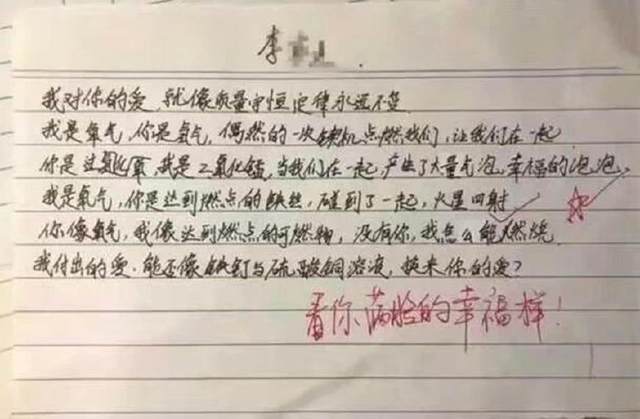 李
我对你的爱,就像质量守恒定律永远不变
我是氧气,你是氢气,偶然的一次契机点燃我们,让我们在一起
你是过氧化氢,我是二氧化锰,当我们在一起,产生了大量气泡,幸福的泡泡,
我是氧气,你是达到燃点的铁丝,碰到了一起,火星四射
你像氧气,我像达到燃点的可燃物,没有你,我怎么能燃烧
我付出的爱,能否像铁钉与硫酸铜溶液,换来你的爱?
看你满脸的幸福样!